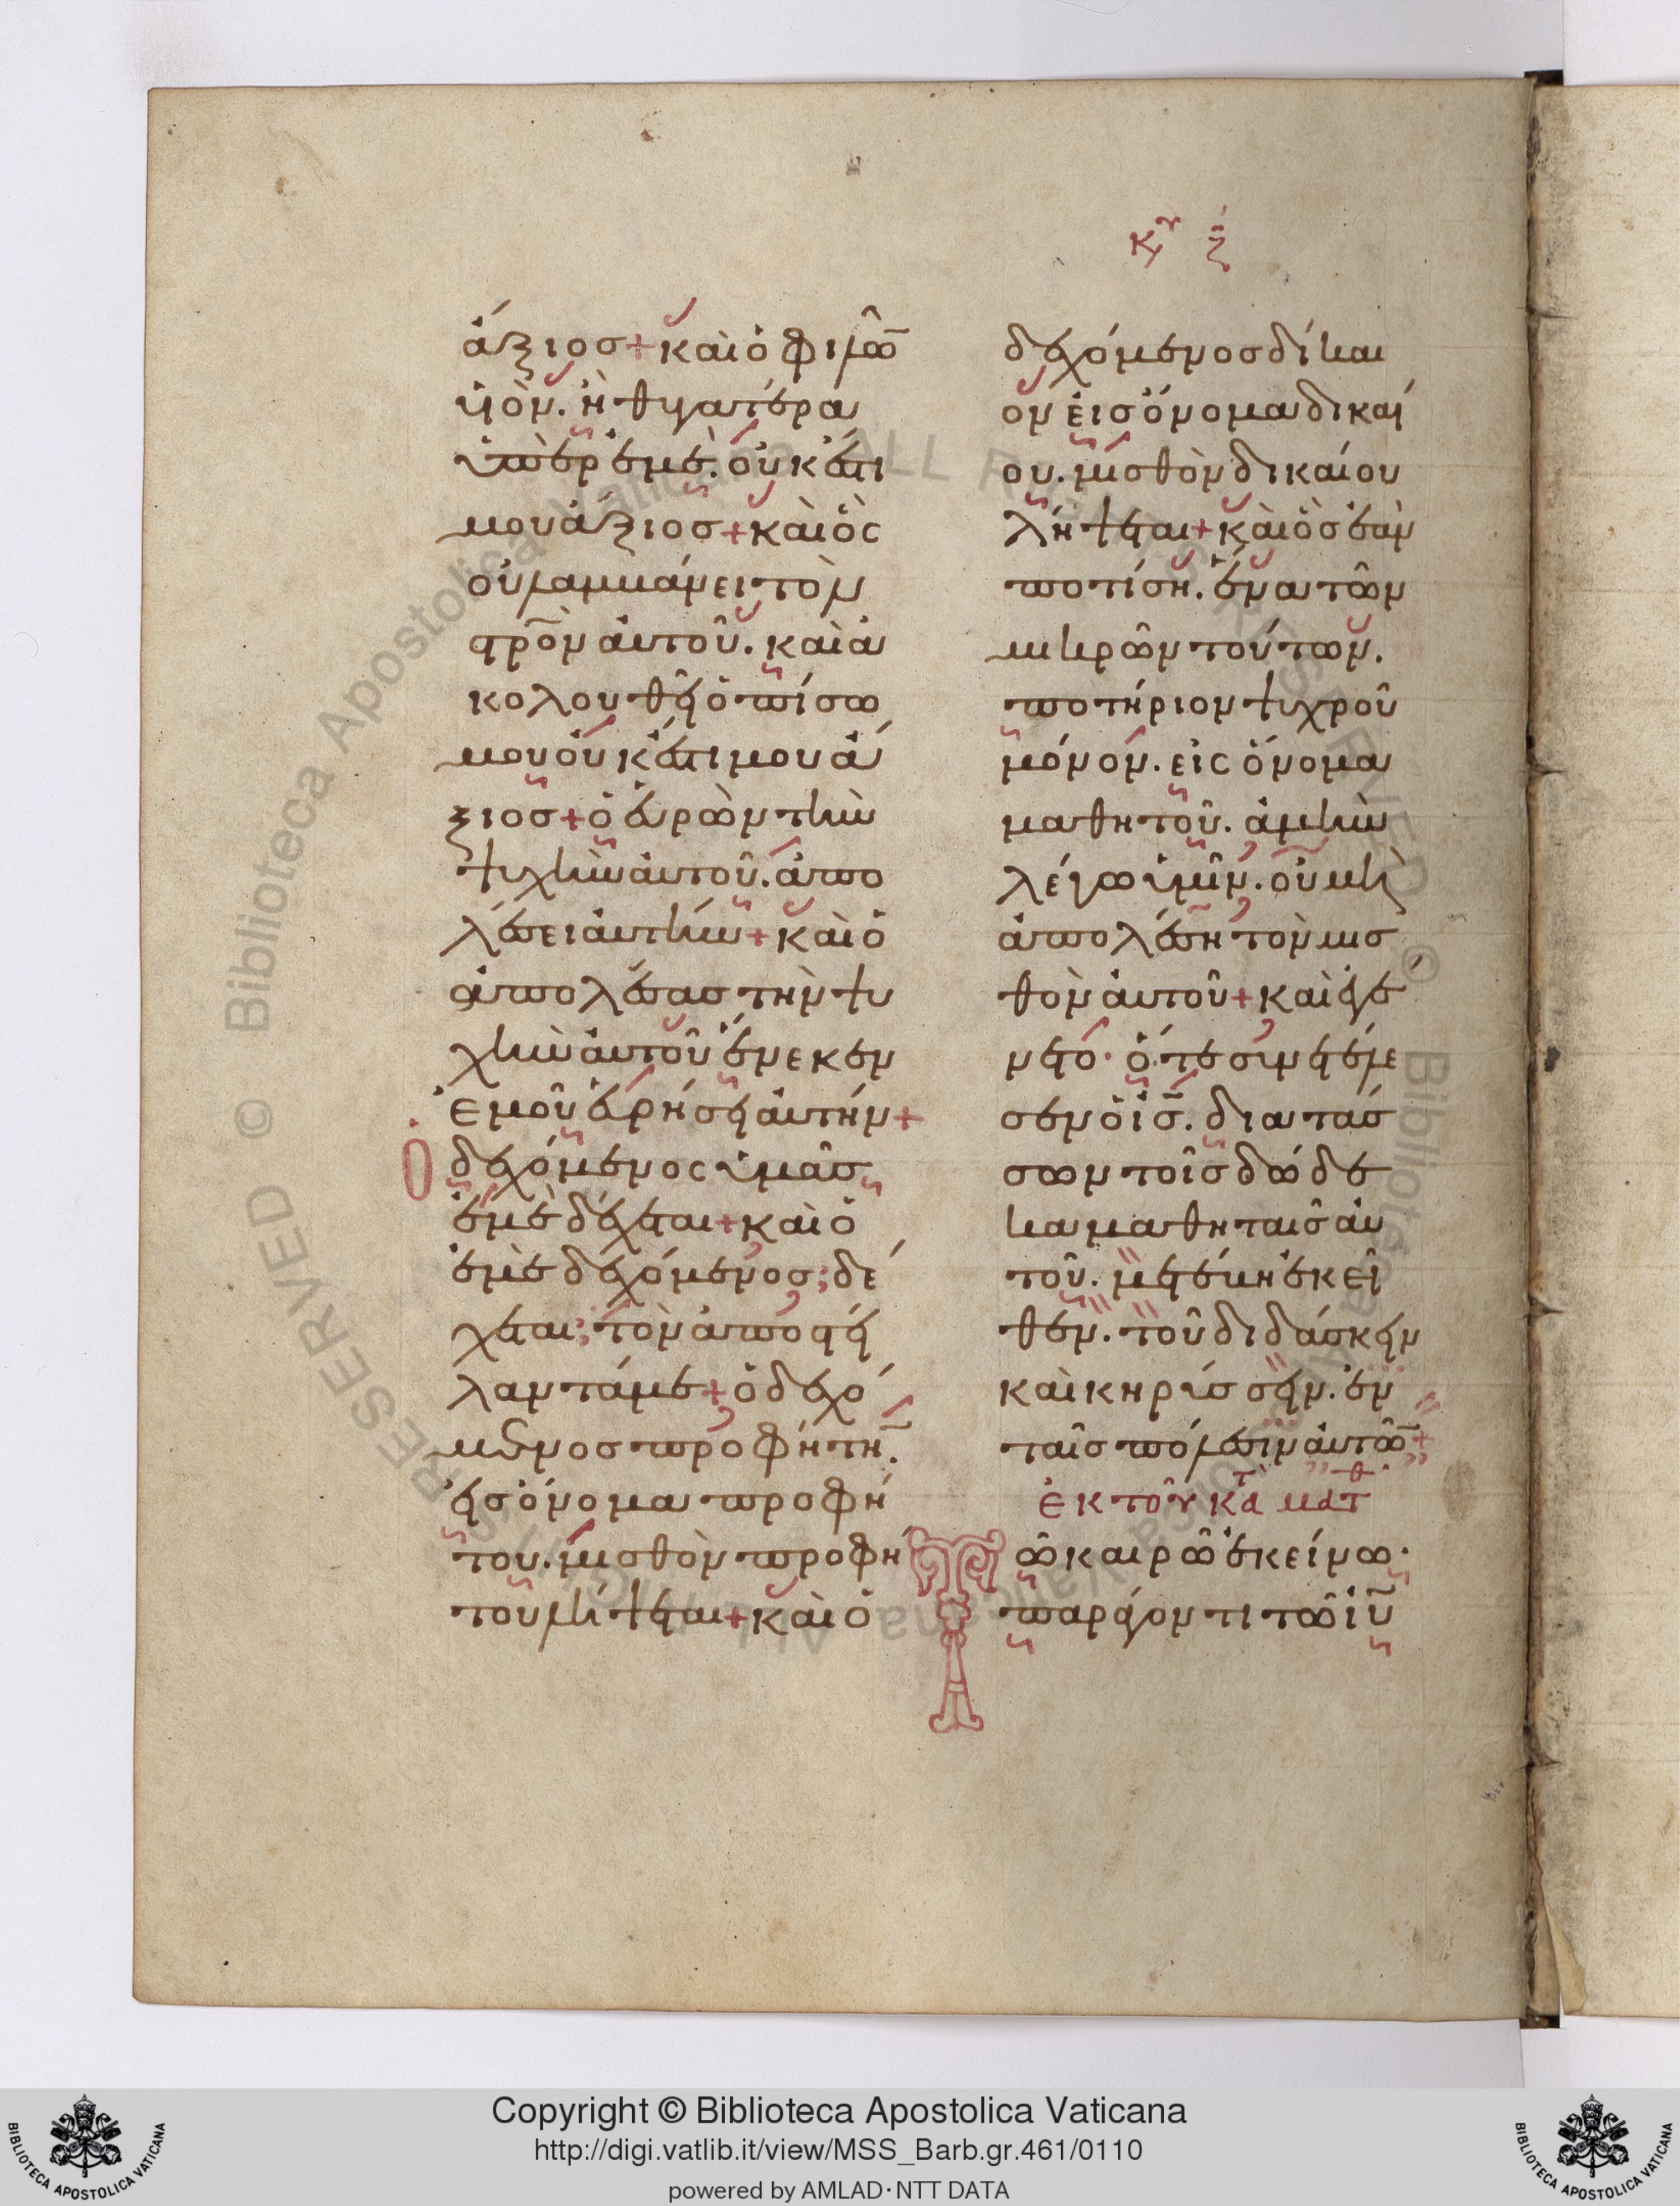 κυ ζ
ἄξιοσ+καὶὁφιλῶ
υἱὸν. ἢθυγατέρα
ὑπὲρἐμὲ. οὐκἔστι
μουἄξιοσ+καὶὃς
οὐλαμβάνειτὸν
στρὸναὐτοῦ. καὶἀ
κολουθεῖὀπίσω
μουοὐκἔστιμουἄ
ξιοσ+ὁεὑρὼντὴν
ψυχὴναὐτοῦ. ἀπο
λέσειαὐτήν+καὶὁ
ἀπολέσαστὴνψυ
χὴναὐτοῦἕνεκεν
ἐμοῦεὑρήσειαὐτήν+
Ὁδεχόμενοςὑμᾶσ
ἐμὲδέχεται+καὶὁ
ἐμὲδεχόμενοσ; δέ
χεται; τὸνἀποστεί
λαντάμε+ὁδεχό
μενοσπροφήτη.
εἰσὄνομαπροφή
του. μισθὸνπροφή
τουλήψεται+καὶὁ
δεχόμενοσδίκαι
ονεἰσὄνομαδικαί
ου. μισθὸνδικαίου
λήψεται+καὶὃσἐὰν
ποτίση. ἕνατῶν
μικρῶντούτων.
ποτήριονψυχροῦ
μόνον. εἰςὄνομα
μαθητοῦ. ἀμὴν
λέγωὑμῖν. οὐμὴ
ἀπολέσητὸνμισ
θὸναὐτοῦ+καὶἐγέ
νετο· ὅτεσυνετέλε
σενὁἰσ. διατάσ
σωντοῖσδώδε
καμαθηταῖσαὐ
τοῦ. μετέβηἐκεῖ
θεν. τοῦδιδάσκειν
καὶκηρύσσειν. ἐν
ταῖσπόλεσιναὐτῶ+
ἐκτοῦκατὰματθ
Τῶκαιρῶἐκείνω·
παράγοντιτῶἰυ